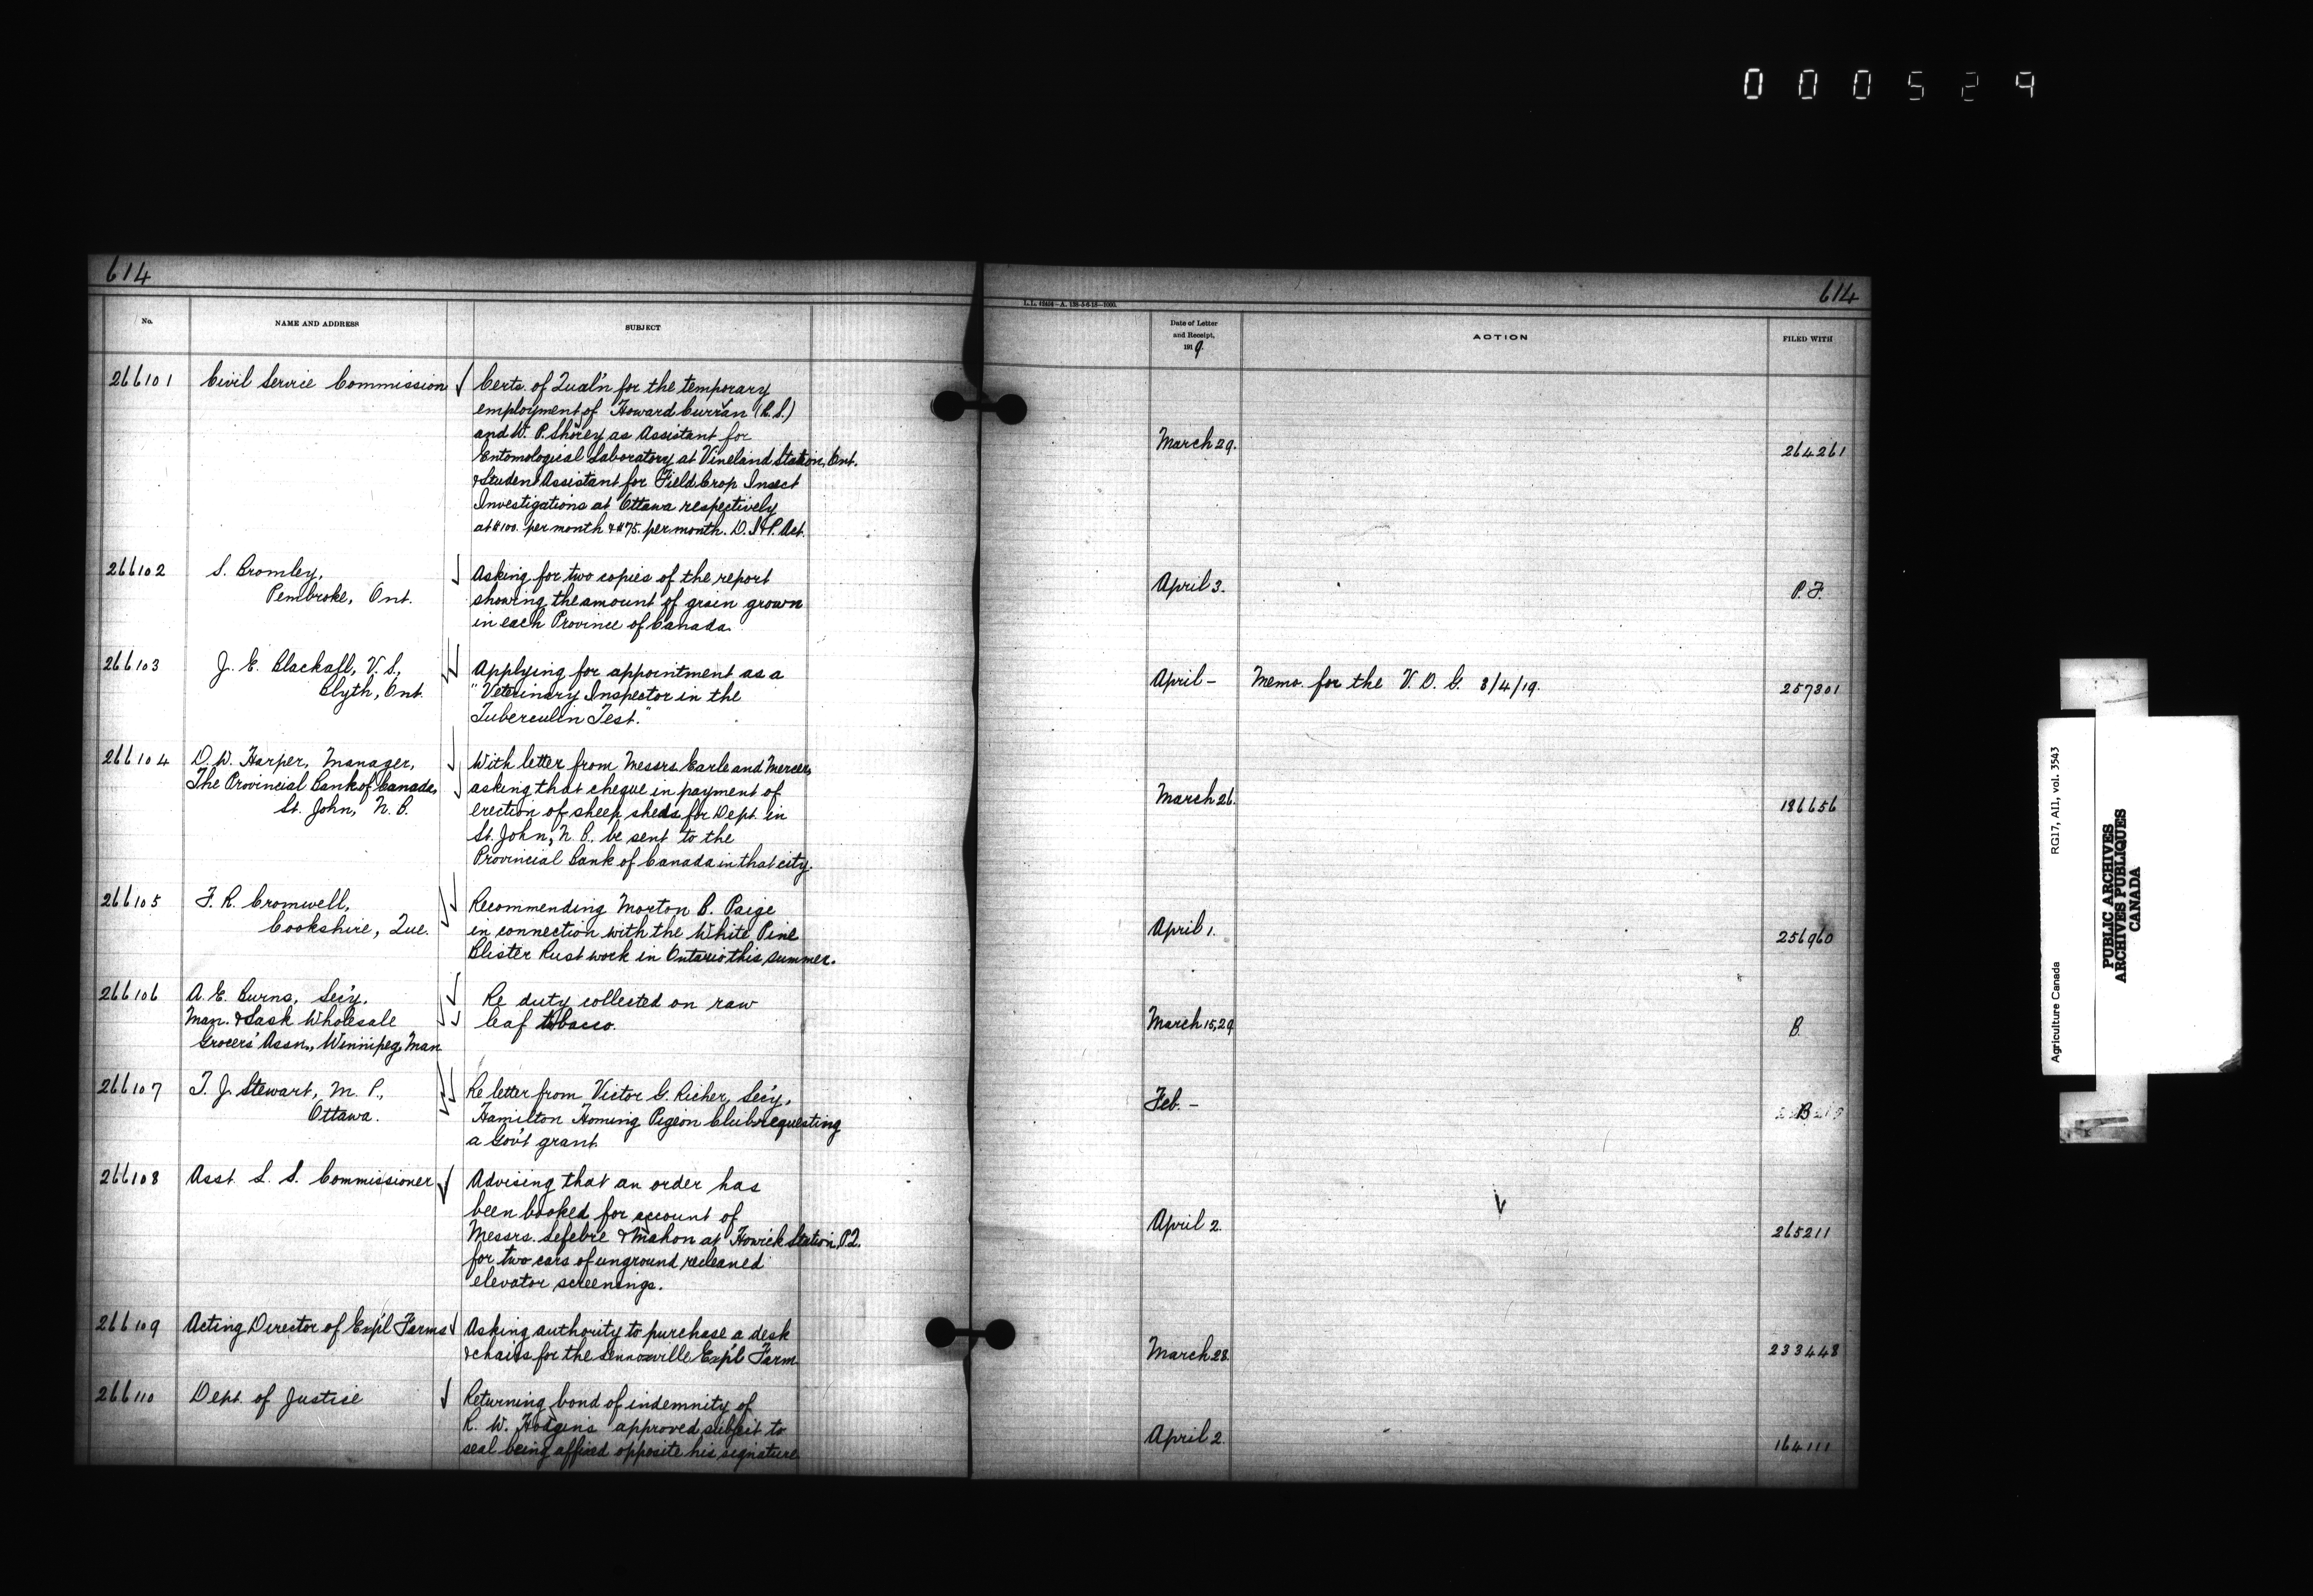 000529
614
614
L.L.
No.
NAME AND ADDRESS
SUBJECT
Date of Letter
and Receipt,
1919.
ACTION
FILED WITH
266101
Civil Service Commission
Certs. of Qual'n for the temporary
employment of Howard Curran (R.S.)
and W. P. Shorey as Assistant for
Entomological Laboratory at Vineland Station, Ont.
& Student Assistant for Field Crop Insect
Investigations at Ottawa respectively
at $100. per month & $75. per month. D. I & P. Act.
March 29.
264261
266102
S. Bromley,
Pembroke, Ont.
Asking for two copies of the report
showing the amount of grain grown
in each Province of Canada.
April 3.
P. F.
266103
J. E. Blackall, V. S.,
Blyth, Ont.
Applying for appointment as a
"Veterinary Inspector in the
Tuberculin Test."
April -
Memo. for the V. D. G. 8/4/19.
257801
266104
D. W. Harper, Manager,
The Provincial Bank of Canada,
St. John, N. B.
With letter from Messrs. Earle and Mercer,
asking that cheque in payment of
erection of sheep sheds for Dept. in
St. John, N. B., be sent to the
Provincial Bank of Canada in that city.
March 26.
186656
266105
F. R. Cromwell,
Cookshire, Que.
Recommending Morton B. Paige
in connection with the White Pine
Blister Rust work in Ontario this summer.
April 1.
256960
266106
A. E. Burns, Sec'y.
Man. & Sask Wholesale
Grocers' Assn., Winnipeg, Man
Re duty collected on raw
leaf tobacco.
March 15, 29
B.
266107
T. J. Stewart, M. P.,
Ottawa.
Re letter from Victor G. Richer, Sec'y,
Hamilton Homing Pigeon Club requesting
a Gov't grant
Feb. -
B
266108
Asst. L. S. Commissioner
Advising that an order has
been booked for account of
Messrs. Lefebre & Mahon at Howick Station, P.Q.
for two cars of unground recleaned
elevator screenings.
April 2.
265211
266109
Acting Director of Exp'l Farms
Asking authority to purchase a desk
& chairs for the Lennoxville Exp'l Farm.
March 28.
233448
266110
Dept. of Justice
Returning bond of indemnity of
R. W. Hodgins approved subject to
seal being affixed opposite his signature
April 2.
164111
Agriculture Canada RG17, AII, vol. 3543
PUBLIC ARCHIVES
ARCHIVES PUBLIQUES
CANADA